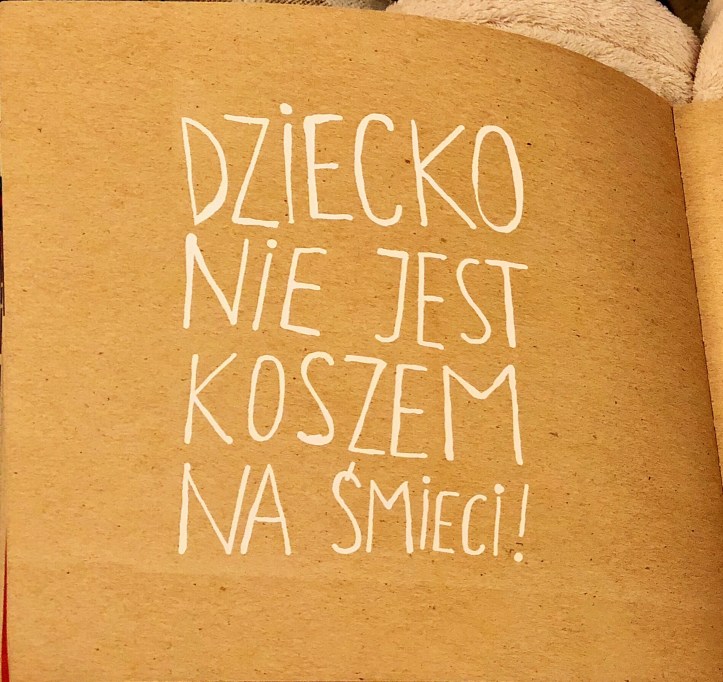 DZiECKO
NiE JEST
KOSZEM
NA ŚMiECi!